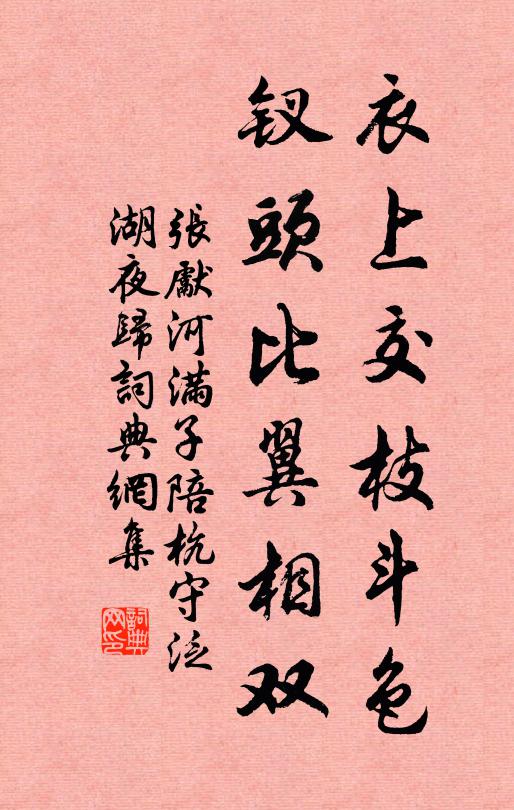 衣上交枝斗色
钗頭比翼相双
張獻河滿子陪杭守泛
湖夜歸詞典網集
詞典
网印